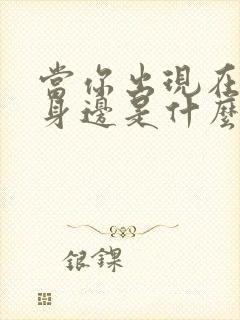 當你出現在
身邊是什麼
銀鏍